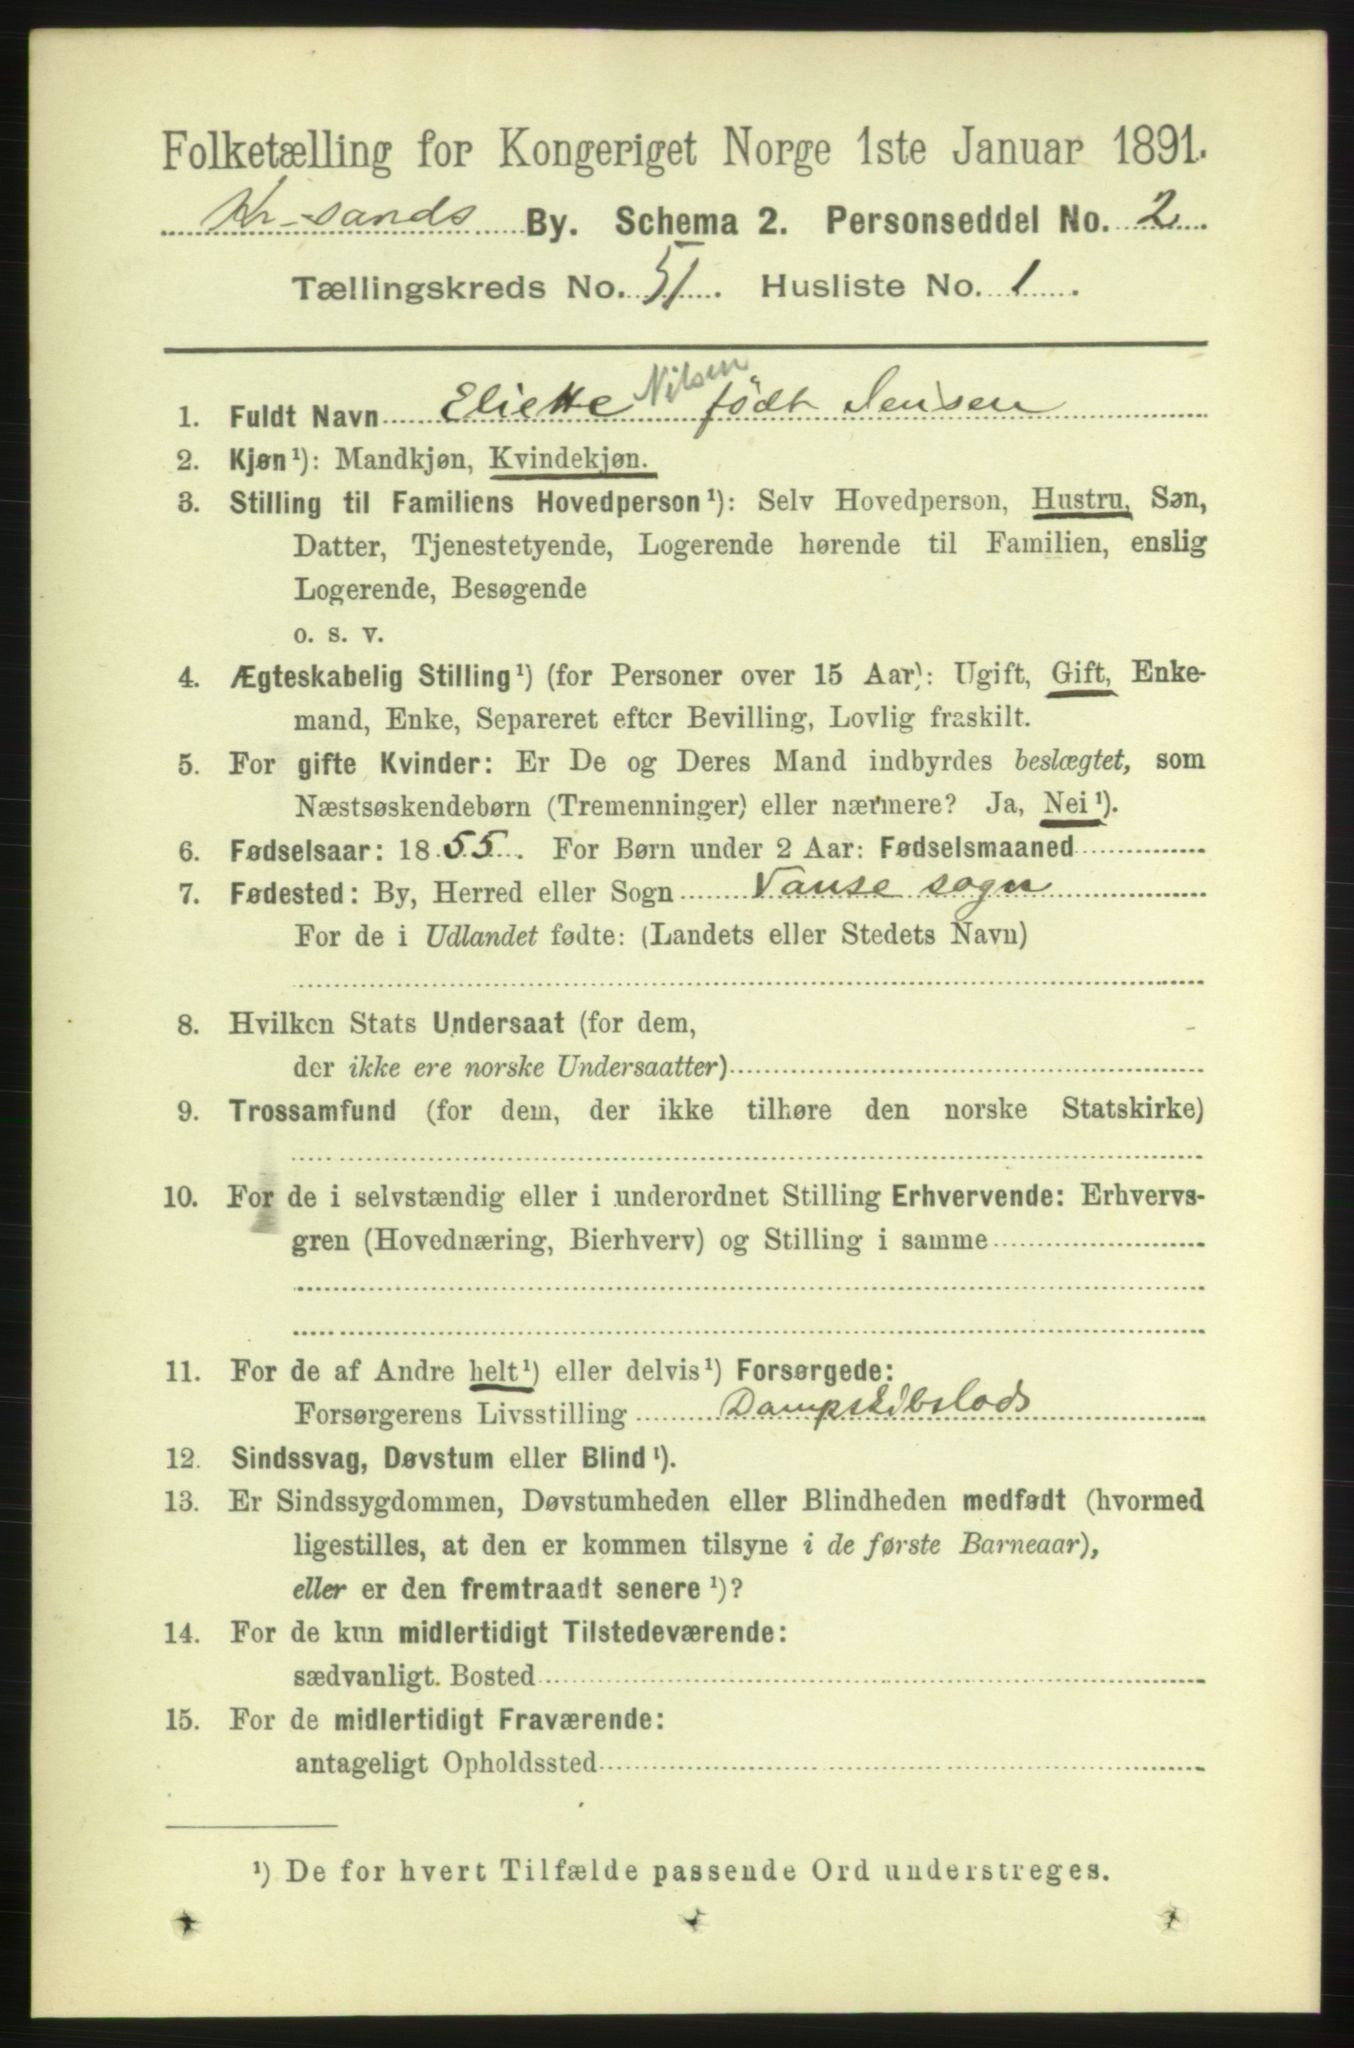 Folketælling for Kongeriget Norge 1ste Januar 1891.
Kr-sands By. Schema 2. Personseddel No. 2
Tællingskreds No. 51. Husliste No. 1.
1. Fuldt Navn Eliette Nilsen født Jensen
2. Kjøn¹): Mandkjøn, Kvindekjøn.
3. Stilling til Familiens Hovedperson¹): Selv Hovedperson, Hustru, Søn,
Datter, Tjenestetyende, Logerende hørende til Familien, enslig
Logerende, Besøgende
o. s. v.
4. Ægteskabelig Stilling¹) (for Personer over 15 Aar): Ugift, Gift, Enke-
mand, Enke, Separeret efter Bevilling, Lovlig fraskilt.
5. For gifte Kvinder: Er De og Deres Mand indbyrdes beslægtet, som
Næstsøskendebørn (Tremenninger) eller nærmere? Ja, Nei¹).
6. Fødselsaar: 1855. For Børn under 2 Aar: Fødselsmaaned
7. Fødested: By, Herred eller Sogn Vanse sogn
For de i Udlandet fødte: (Landets eller Stedets Navn)
8. Hvilken Stats Undersaat (for dem,
der ikke ere norske Undersaatter)
9. Trossamfund (for dem, der ikke tilhøre den norske Statskirke)
10. For de i selvstændig eller i underordnet Stilling Erhvervende: Erhvervs-
gren (Hovednæring, Bierhverv) og Stilling i samme
11. For de af Andre helt¹) eller delvis¹) Forsørgede:
Forsørgerens Livsstilling Dampskibslods
12. Sindssvag, Døvstum eller Blind¹).
13. Er Sindssygdommen, Døvstumheden eller Blindheden medfødt (hvormed
ligestilles, at den er kommen tilsyne i de første Barneaar),
eller er den fremtraadt senere¹)?
14. For de kun midlertidigt Tilstedeværende:
sædvanligt. Bosted
15. For de midlertidigt Fraværende:
antageligt Opholdssted
¹) De for hvert Tilfælde passende Ord understreges.